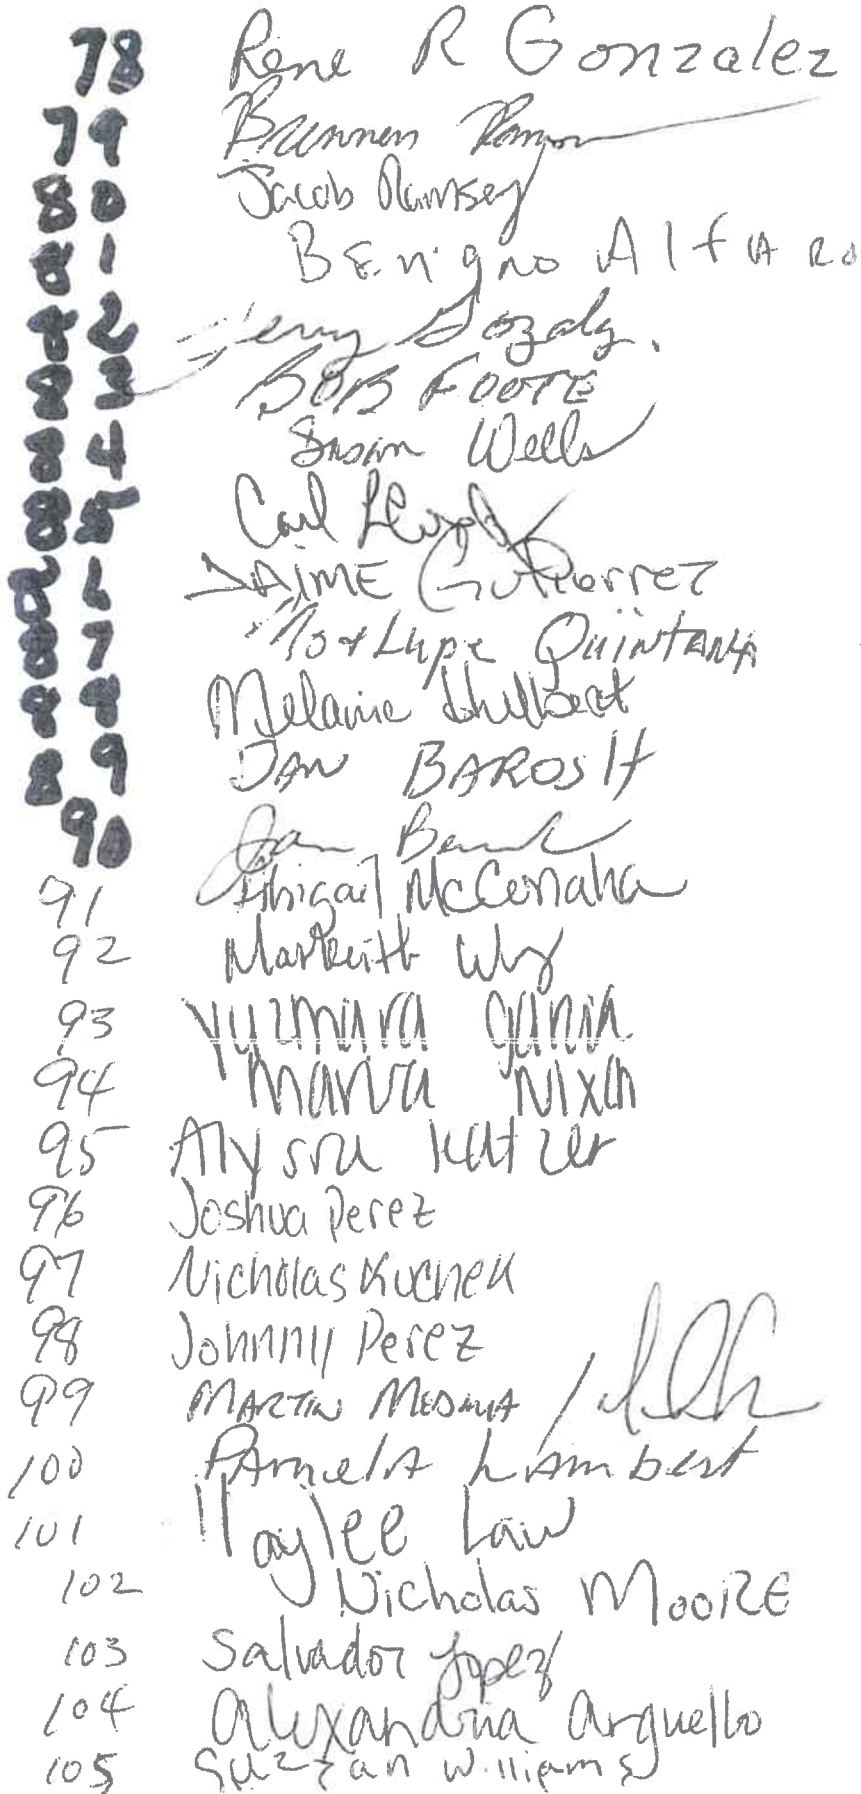 78 Rene R Gonzalez
79 Brennen
80 Jacob Ramsey
81 Benigno Alfaro
82 Jerry
83 BOB FOOTE
84 Susan Wells
85 Carl Lloyd
86 JAIME Gutierrez
87 Mo & Lupe QuinTANA
88 Melanie Hulbert
89 DAN BAROSH
90
91 Abigail McConaha
92 Markeith
93 yuzmara garcia
94 marva Nixon
95 Alyssa Katzer
96 Joshua Perez
97 Nicholas
98 Johnny Perez
99 MARTIN MEDINA /
100 PAmelA LAmbert
101 Haylee Law
102 Nicholas MOORE
103 Salvador Lopez
104 alexandria arguello
105 Suzzan Williams